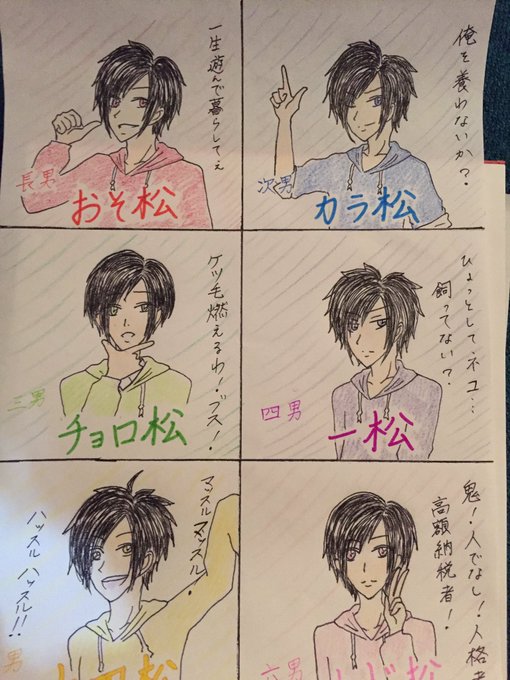 一生遊んで暮らしてぇ
長男
おそ松
俺を養わないか?
次男
カラ松
ケツ毛燃えるわ!ブス!
三男
チョロ松
ひょっとしてネコ…
飼ってない?
四男
一松
マッスル マッスル!
ハッスル ハッスル!!
男
十四松
鬼!人でなし!人格者
高額納税者!
六男
トド松